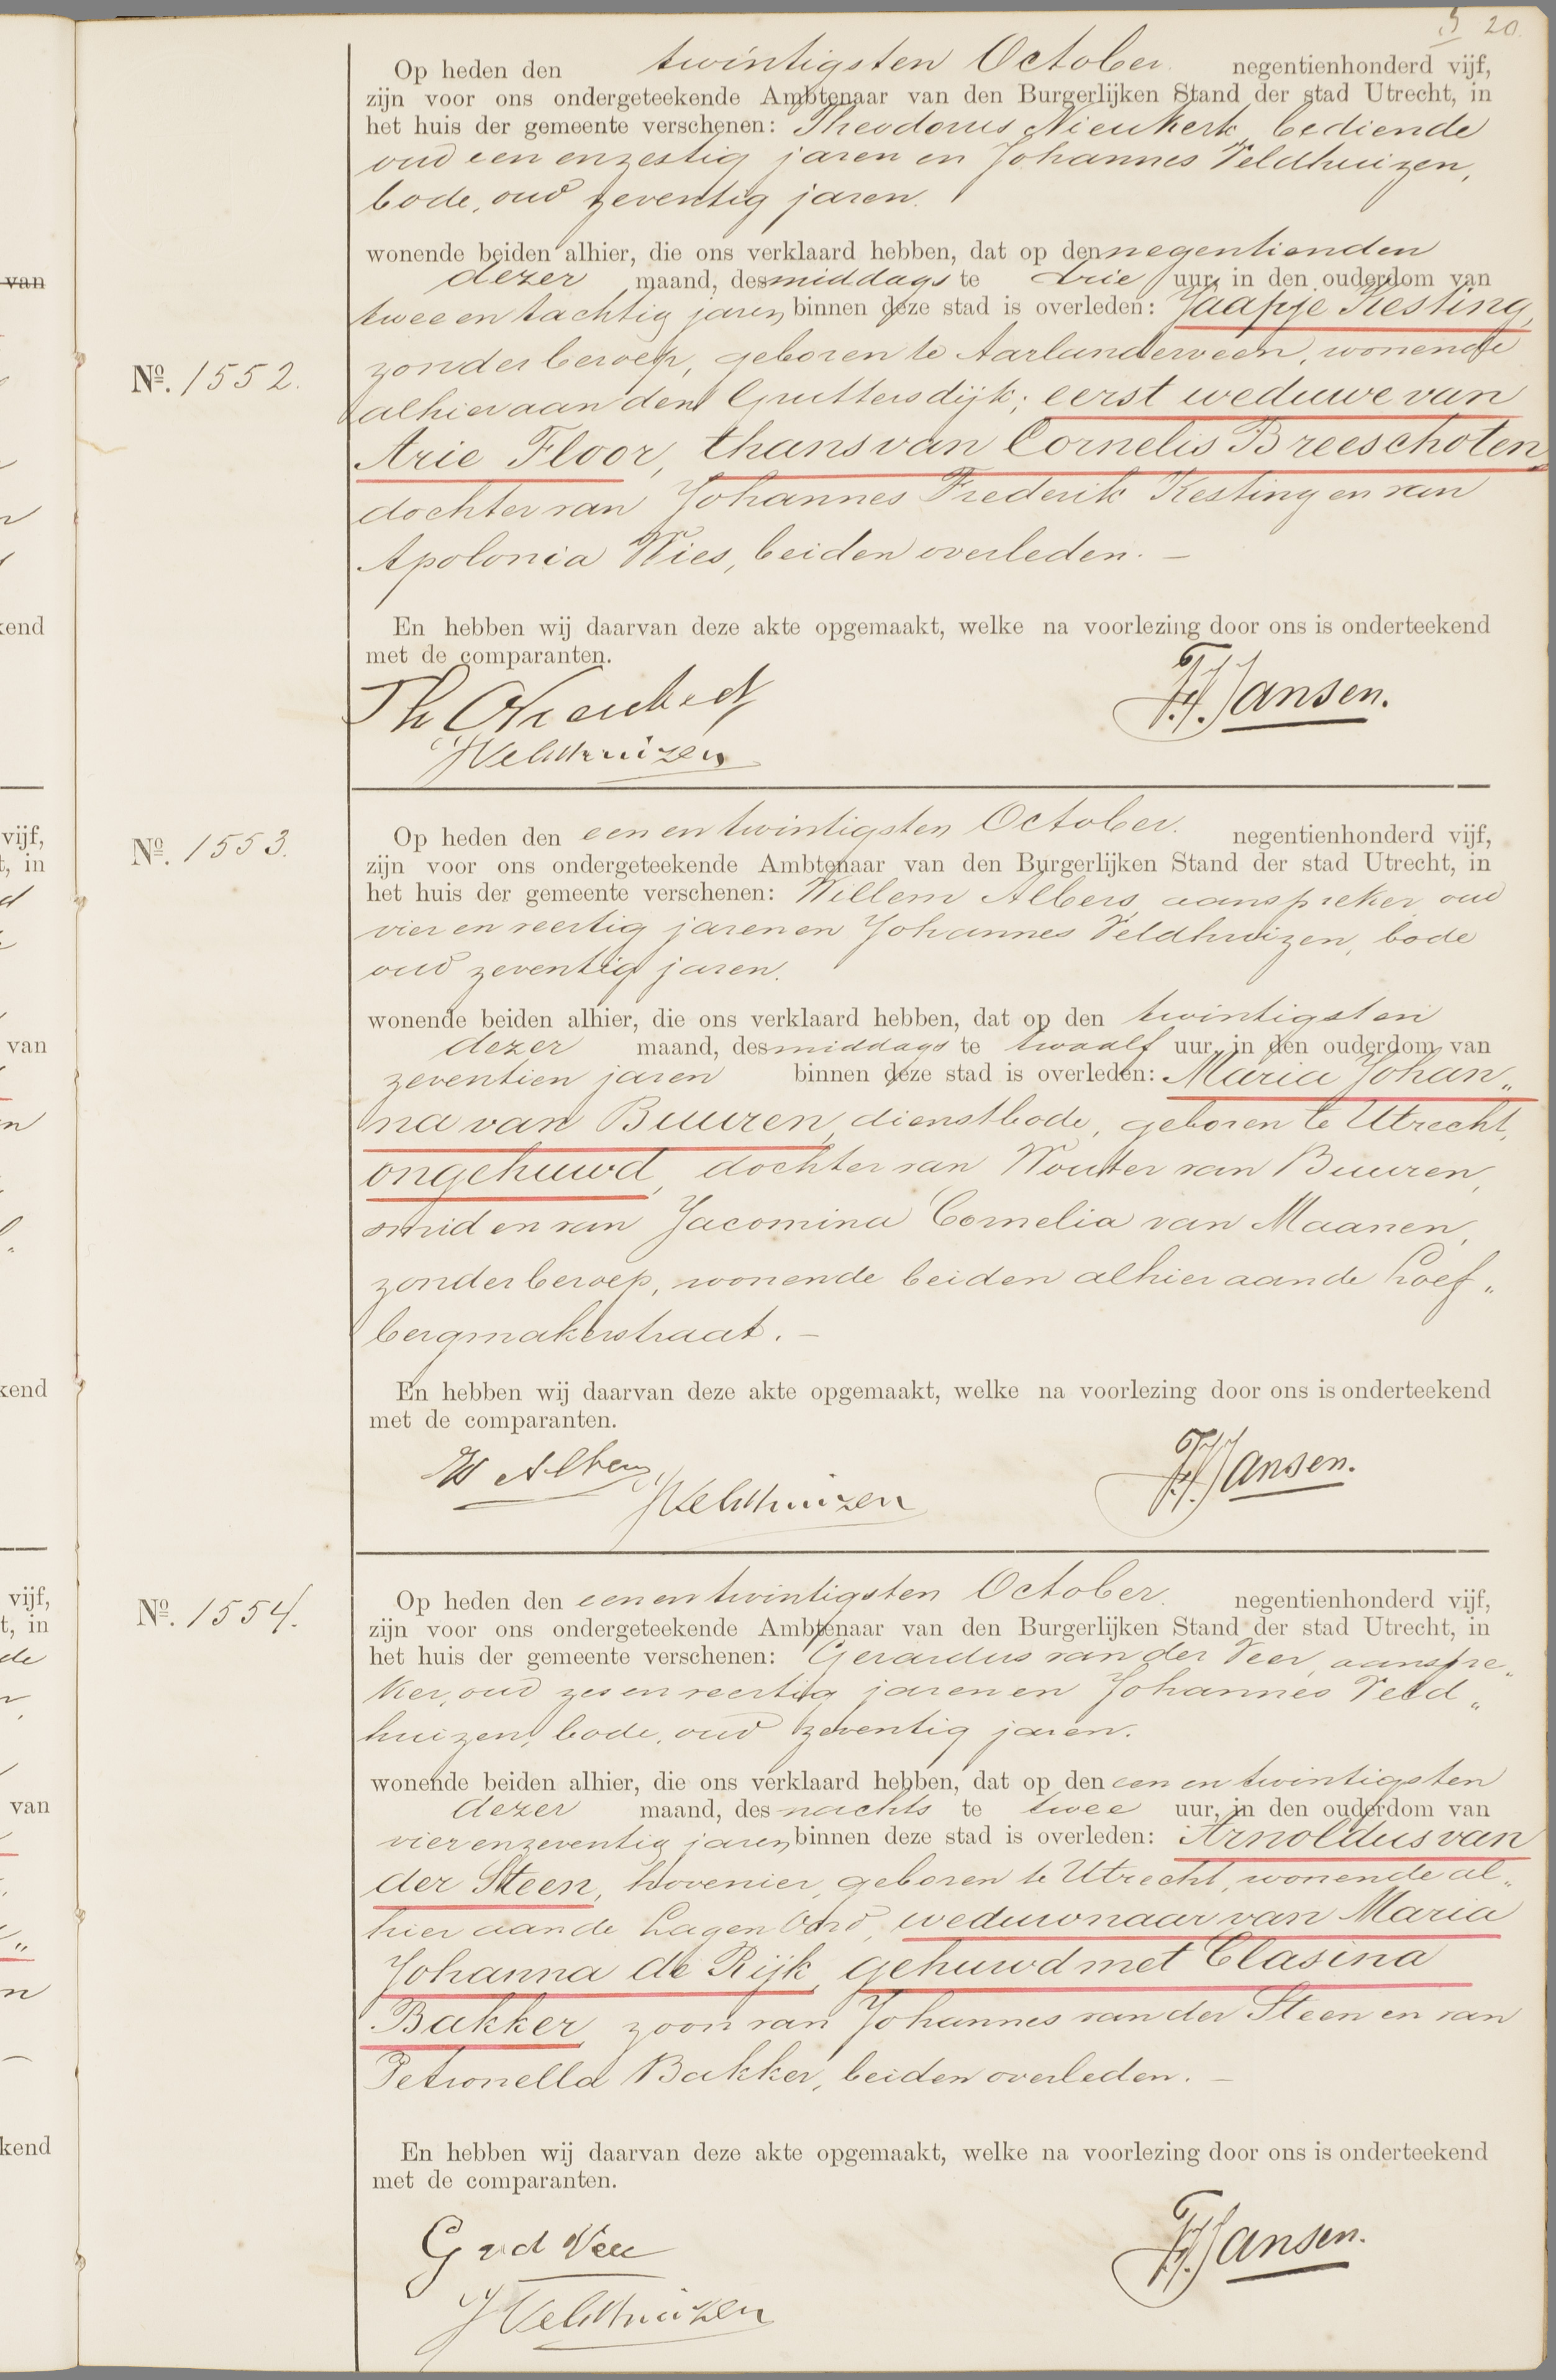 5 20.
Op heden den twintigsten October negentienhonderd vijf,
zijn voor ons ondergeteekende Ambtenaar van den Burgerlijken Stand der stad Utrecht, in
het huis der gemeente verschenen: Theodorus Nieukerk, bediende
oud een en zestig jaren en Johannes Veldhuizen,
bode, oud zeventig jaren.
wonende beiden alhier, die ons verklaard hebben, dat op den negentienden
dezer maand, des middags te drie uur, in den ouderdom van
twee en tachtig jaren, binnen deze stad is overleden: Jaapje Kesting,
No. 1552.
zonder beroep, geboren te Aarlanderveen, wonende
alhier aan den Gruttersdijk; eerst weduwe van
Arie Floor, thans van Cornelis Breeschoten,
dochter van Johannes Frederik Kesting en van
Apolonia Wies, beiden overleden. —
En hebben wij daarvan deze akte opgemaakt, welke na voorlezing door ons is onderteekend
met de comparanten.
Th Nieukerk
Jansen.
JVeldhuizen
No. 1553.
Op heden den een en twintigsten October. negentienhonderd vijf,
zijn voor ons ondergeteekende Ambtenaar van den Burgerlijken Stand der stad Utrecht, in
het huis der gemeente verschenen: Willem Albers, aanspreker, oud
vier en veertig jaren en Johannes Veldhuizen, bode
oud zeventig jaren.
wonende beiden alhier, die ons verklaard hebben, dat op den twintigsten
dezer maand, des middags te twaalf uur, in den ouderdom van
zeventien jaren binnen deze stad is overleden: Maria Johan„
na van Buuren, dienstbode, geboren te Utrecht,
ongehuwd, dochter van Wouter van Buuren,
smid en van Jacomina Cornelia van Maanen,
zonder beroep, wonende beiden alhier aan de
bergmakerstraat. —
En hebben wij daarvan deze akte opgemaakt, welke na voorlezing door ons is onderteekend
met de comparanten.
W Albers
Jansen.
JVeldhuizen
No. 1554.
Op heden den een en twintigsten October. negentienhonderd vijf,
zijn voor ons ondergeteekende Ambtenaar van den Burgerlijken Stand der stad Utrecht, in
het huis der gemeente verschenen: Gerardus van der Veer, aanspre„
ker, oud zes en veertig jaren en Johannes Veld„
huizen, bode, oud zeventig jaren.
wonende beiden alhier, die ons verklaard hebben, dat op den een en twintigsten
dezer maand, des nachts te twee uur, in den ouderdom van
vier en zeventig jaren, binnen deze stad is overleden: Arnoldus van
der Steen, hovenier, geboren te Utrecht, wonende al„
hier aan de Lagen Oord, weduwnaar van Maria
Johanna de Rijk, gehuwd met Clasina
Bakker, zoon van Johannes van der Steen en van
Petronella Bakker, beiden overleden. —
En hebben wij daarvan deze akte opgemaakt, welke na voorlezing door ons is onderteekend
met de comparanten.
G vd Veer
Jansen.
JVeldhuizen